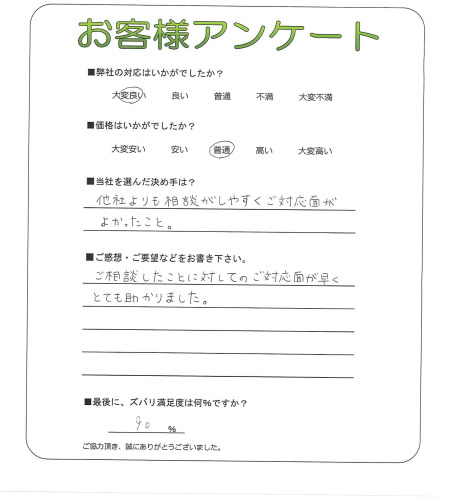 お客様アンケート
■弊社の対応はいかがでしたか？
大変良い 良い 普通 不満 大変不満
■価格はいかがでしたか？
大変安い 安い 普通 高い 大変高い
■当社を選んだ決め手は？
他社よりも相談がしやすくご対応面が
よかったこと。
■ご感想・ご要望などをお書き下さい。
ご相談したことに対してのご対応面が早く
とても助かりました。
■最後に、ズバリ満足度は何%ですか？
90 %
ご協力頂き、誠にありがとうございました。